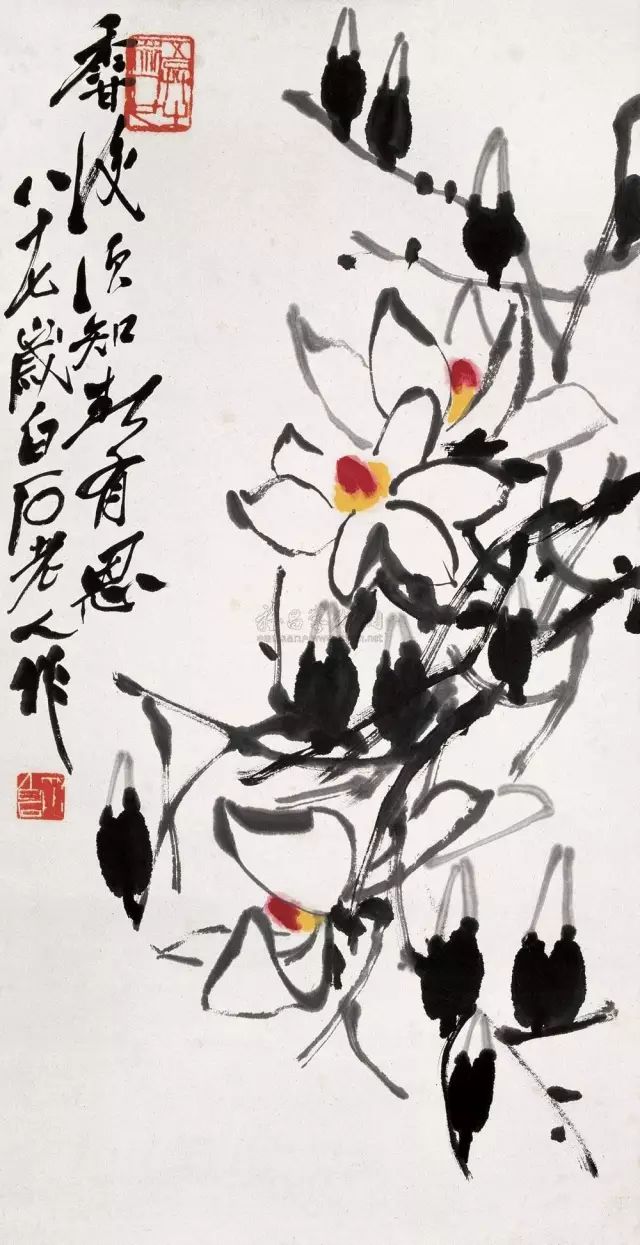 香後須知春有恩
八十七歲白石老人作